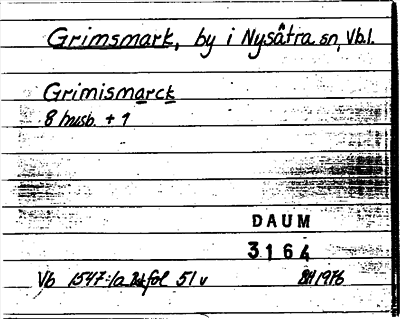 Grimsmark, by i Nysätra sn, Vbl.
Grimismarck
8 husb. + 1
DAUM
3164
Vb 1547:1a fol 51 v 1976